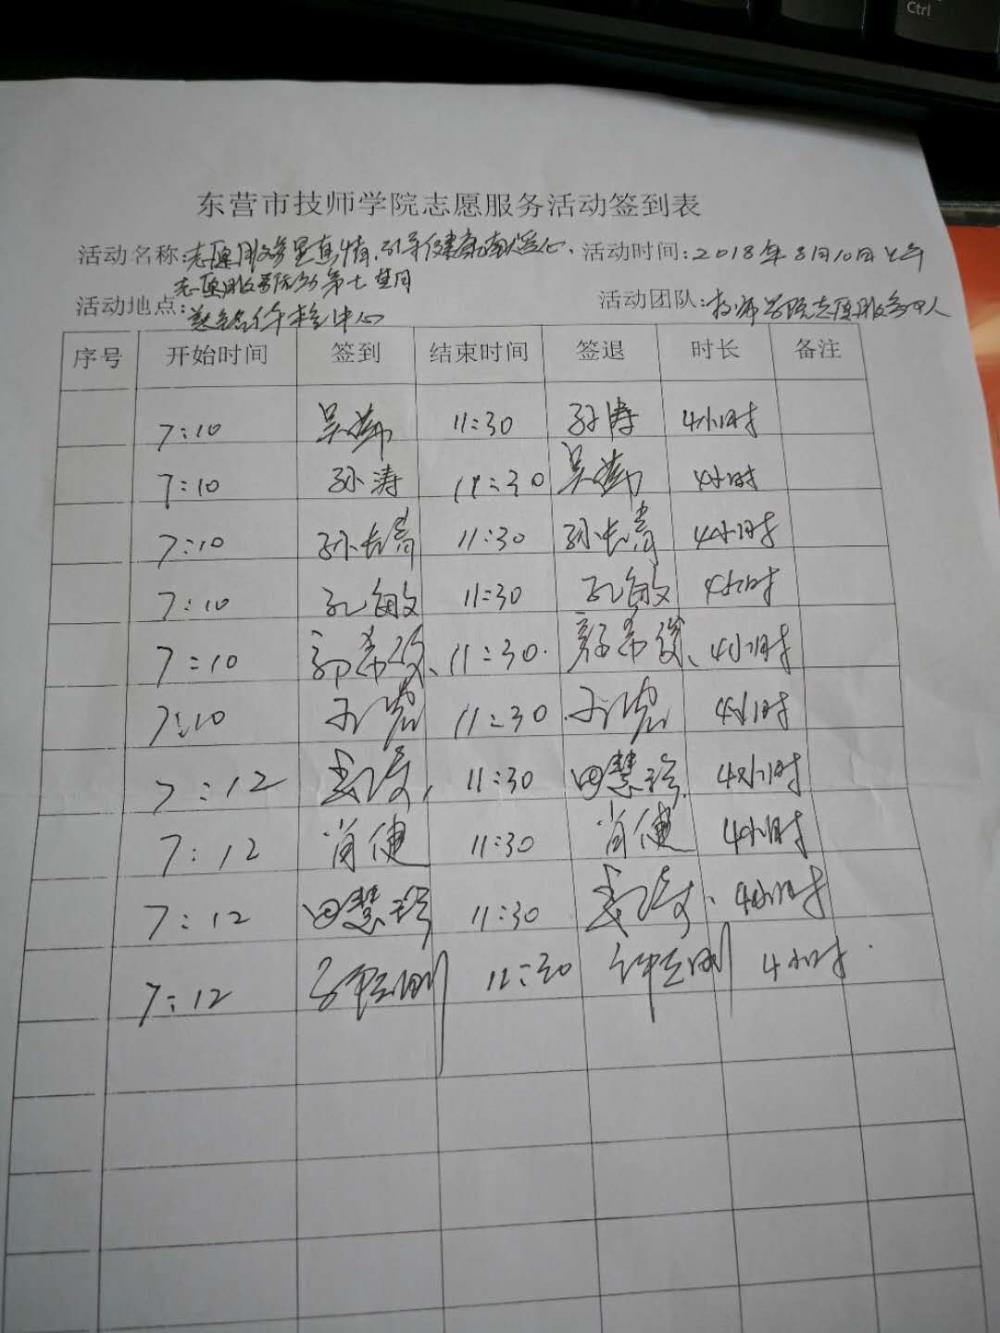 Ctrl
东营市技师学院志愿服务活动签到表
活动名称:志愿服务显真情,引导健康献爱心、 活动时间:2018年8月10日上午
志愿服务活动第七星期
活动地点: 体检中心 活动团队:技师学院志愿服务
序号 开始时间 签到 结束时间 签退 时长 备注
7:10 吴 11:30 孙涛 4小时
7:10 孙涛 11:30 吴 4小时
7:10 孙长青 11:30 孙长青 4小时
7:10 孔敏 11:30 孔敏 4小时
7:10 11:30. 4小时
7:10 11:30 4小时
7:12 11:30 田慧玲 4小时
7:12 肖健 11:30 肖健 4小时
7:12 田慧玲 11:30 4小时
7:12 11:30 4小时